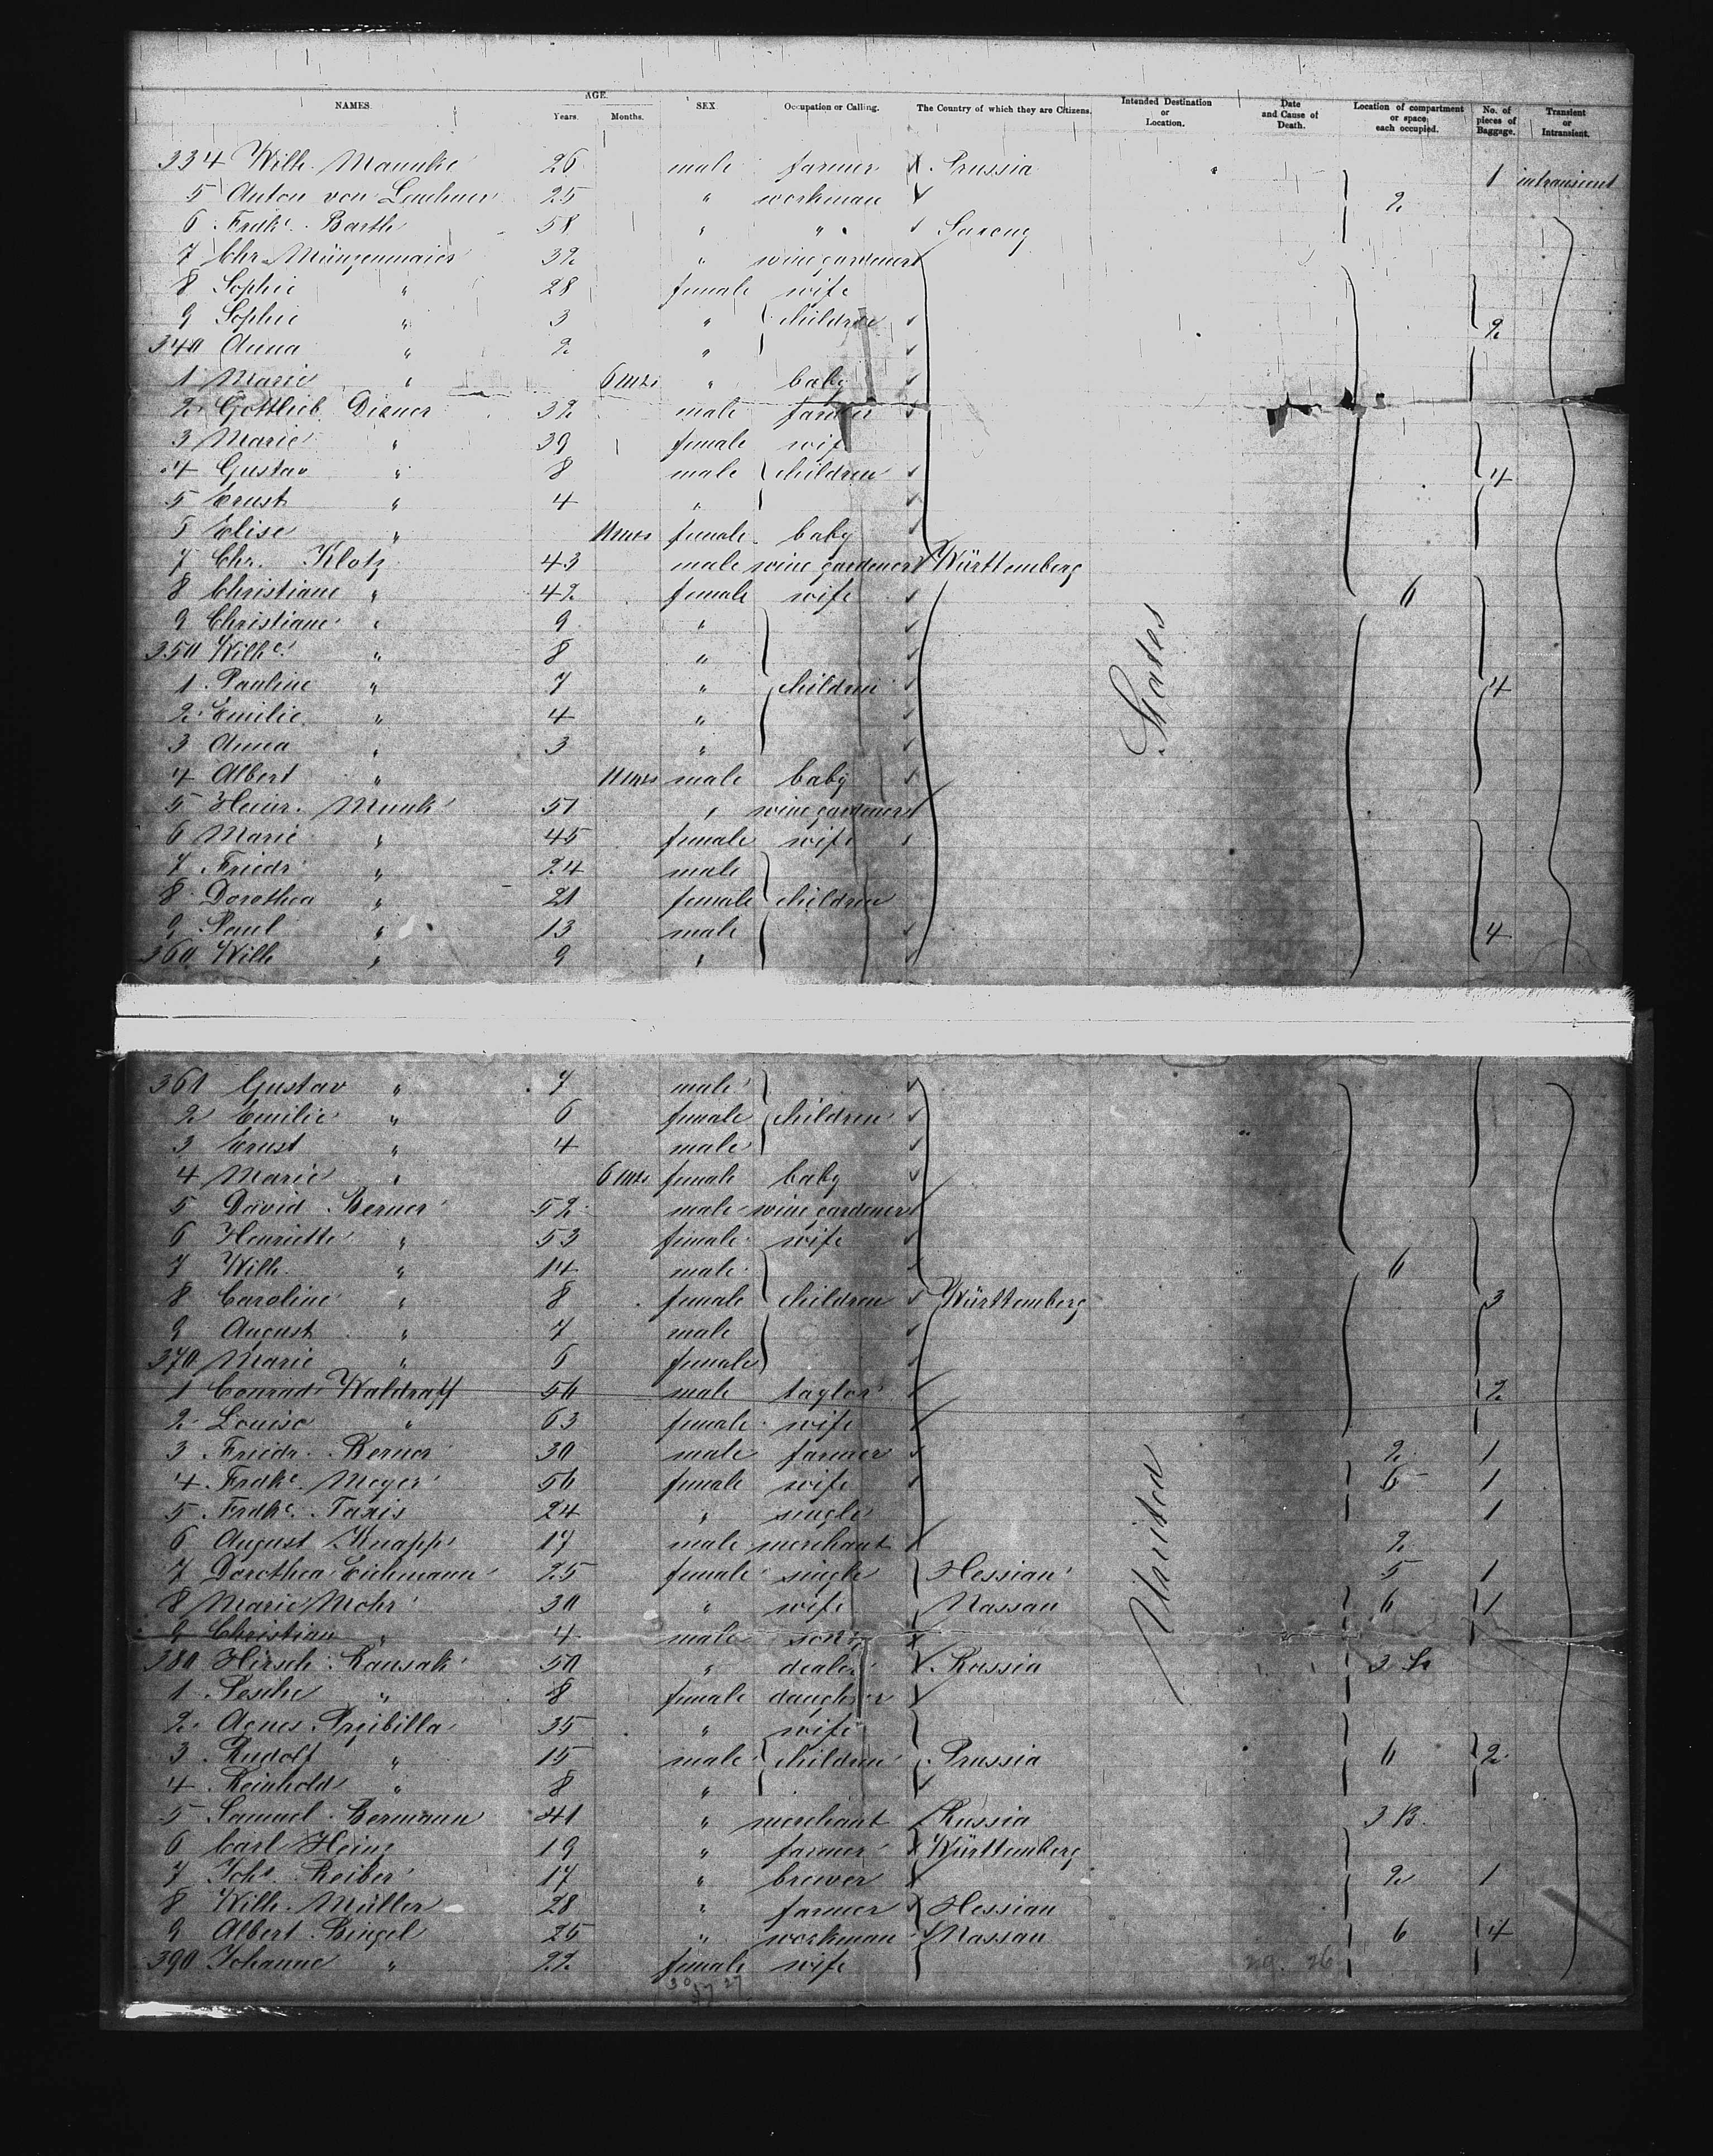 NAMES. AGE. Years. Months. SEX Occupation or Calling. The Country of which they are Citizens. Intended Destination or Location. Date and Cause of Death. Location of compartment or space each occupied. No. of pieces of Baggage. Transient or Intransient.
334 Wilh. 26 male farmer Prussia 1 intransient
5 Anton von 25 " workman 2
6 Fridke. Barth 58 " " Saxony
7 Chr. Münzenmaier 32 " wine gardener
8 Sophie " 28 female wife
9 Sophie " 3 " children 2
340 Anna " 2 "
1 Marie " 6 mts " baby
2 Gottlieb Diener 32 male farmer
3 Marie " 39 female wife
4 Gustav " 8 male children 4
5 Ernst " 4 "
6 Elise " 11 mts female baby
7 Chr. Klotz 43 male wine gardener Württemberg
8 Christiane " 42 female wife 6
9 Christiane " 9 "
350 Wilhe. " 8 "
1 Pauline " 7 " children 4
2 Emilie " 4 "
3 Anna " 3 "
4 Albert " 11 mts male baby
5 Heinr. Munk 51 " wine gardener
6 Marie " 45 female wife
7 Friedr " 24 male
8 Dorothea " 21 female children
9 Paul " 13 male 4
360 Wilh " 9 "
States
361 Gustav " 7 male
2 Emilie " 6 female children
3 Ernst " 4 male
4 Marie " 6 mts female baby
5 David Berner 52 male wine gardener
6 Henriette " 53 female wife
7 Wilh. " 14 male 6
8 Caroline " 8 female children Württemberg 3
9 August " 7 male
370 Marie " 6 female
1 Conrad Waldraff 56 male taylor 2
2 Louise " 63 female wife
3 Friedr. Berner 30 male farmer 2 1
4 Frdke. Meyer 56 female wife 6 1
5 Frdke. Taxis 24 " single 1
6 August Knapp 17 male merchant 2
7 Dorothea Eichmann 25 female single Hessian 5 1
8 Marie Mohr 30 " wife Nassau 6 1
9 Christian " 4 male son
380 Hirsch Kausak 50 " dealer Russia 3
1 Pesche " 8 female daughter
2 Agnes Przibilla 35 " wife
3 Rudolf " 15 male children Prussia 6 2
4 Reinhold " 8 "
5 Samuel Bermann 41 " merchant Russia 3 B.
6 Carl Heinz 19 " farmer Württemberg
7 Johs. Reiber 17 " brewer 2 1
8 Wilh. Müller 28 " farmer Hessian
9 Albert Bingel 25 " workman Nassau 6 4
390 Johanne " 22 female wife
United